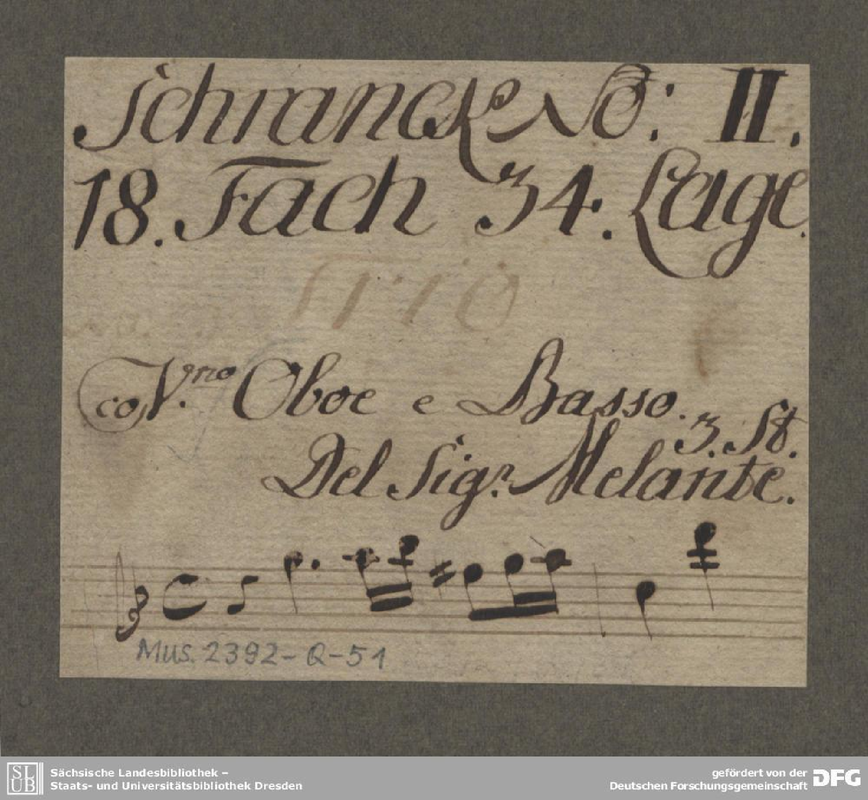 Schranck No: II.
18. Fach 34. Lage.
Trio
co V.no Oboe e Basso.
3. St.
Del Sigr. Melante.
Mus. 2392-Q-51
SLUB
Sächsische Landesbibliothek –
Staats- und Universitätsbibliothek Dresden
gefördert von der
Deutschen Forschungsgemeinschaft
DFG